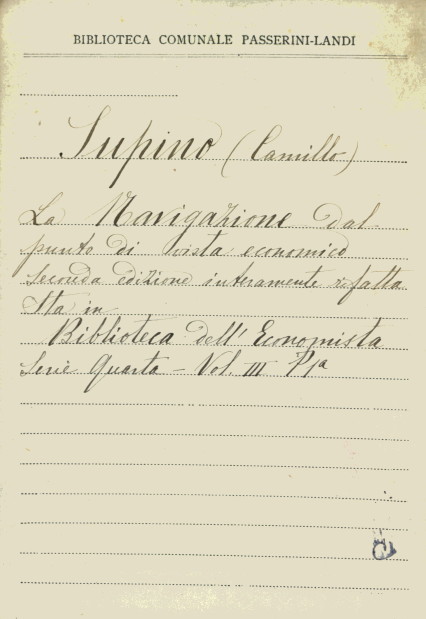 BIBLIOTECA COMUNALE PASSERINI-LANDI
Supino (Camillo)
La Navigazione dal
punto di vista economico
seconda edizione interamente rifatta
Sta in
Biblioteca dell' Economista
Serie Quarta - Vol. III P 1ª